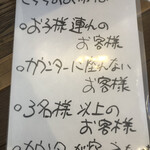 こちらのお席は
○お子様連れの
お客様
○カウンターに座れない
お客様
○3名様以上の
お客様